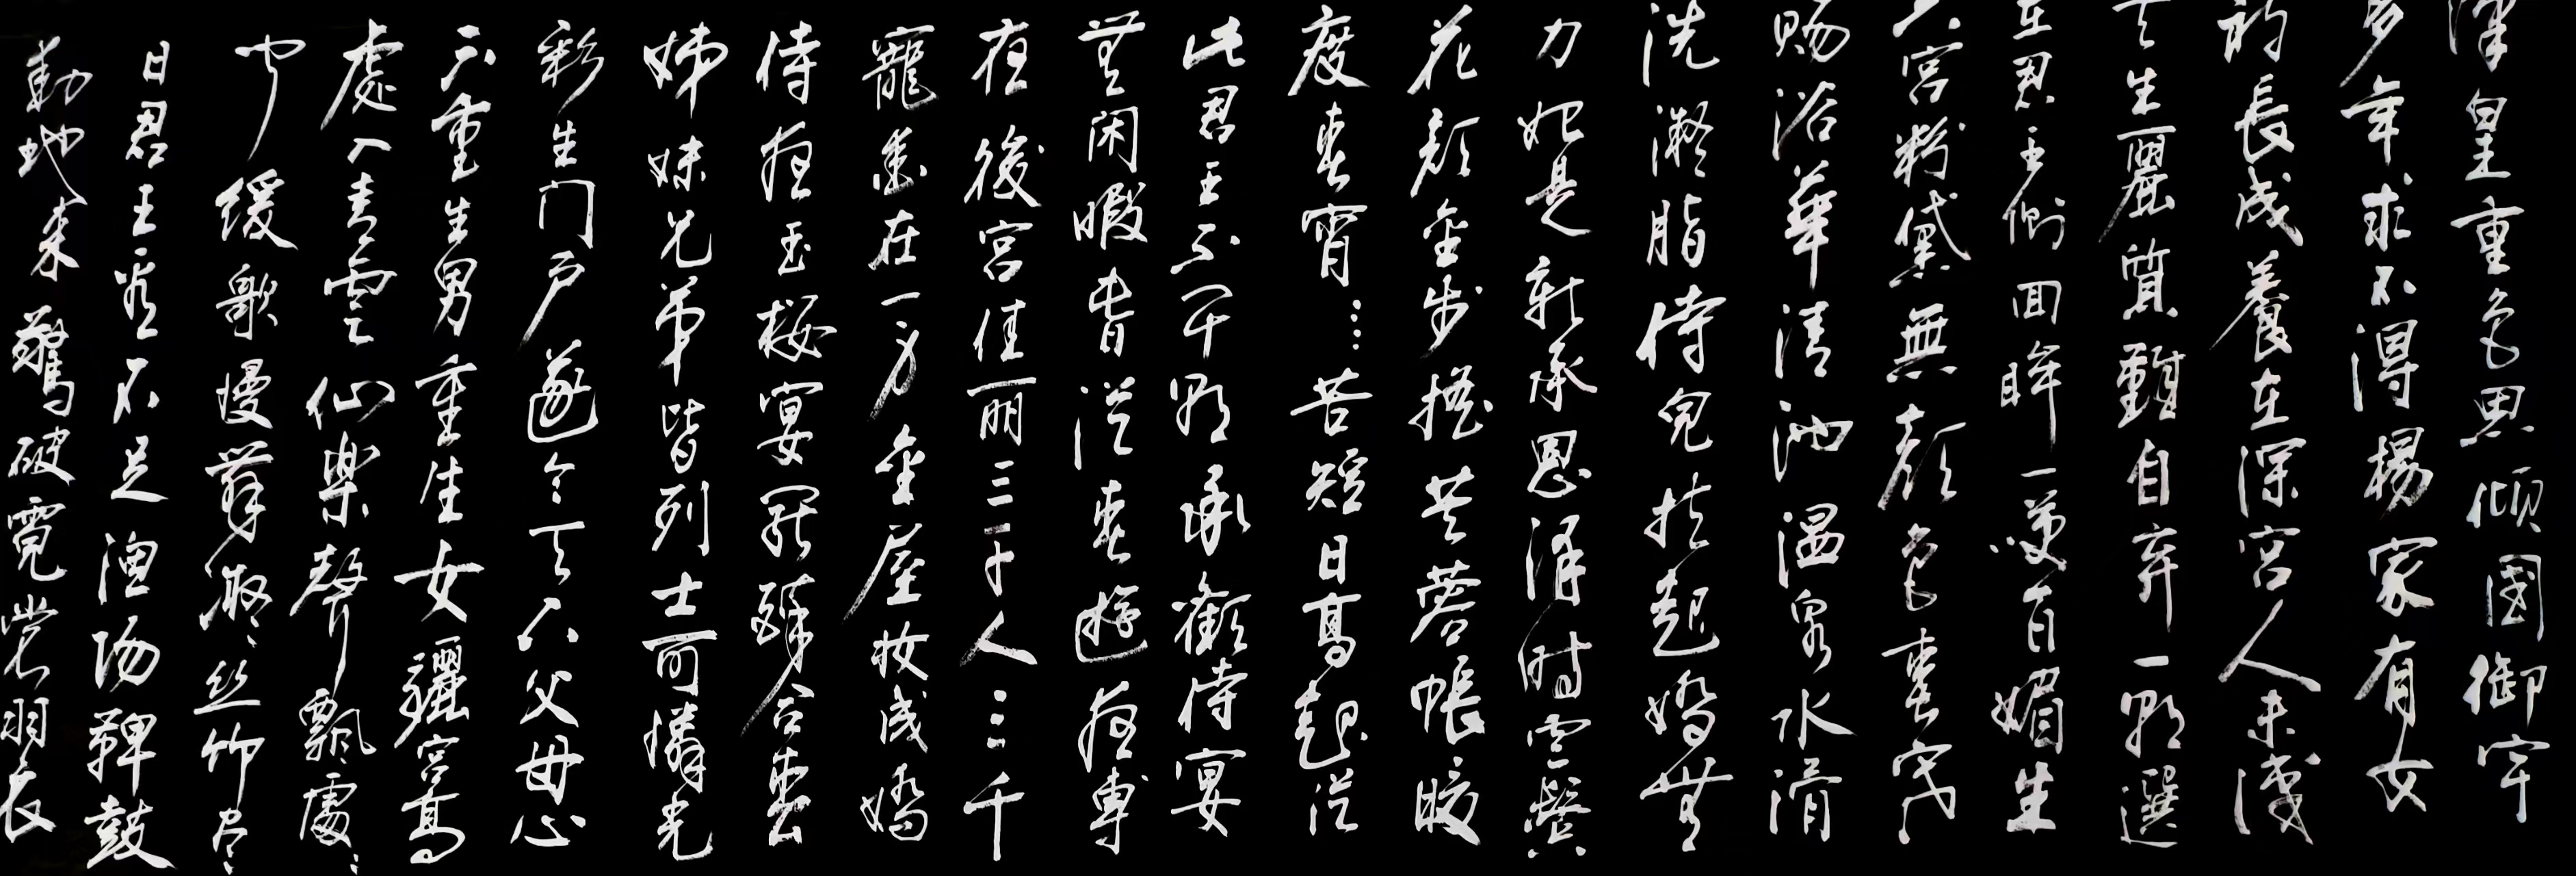 漢皇重色思傾國御宇
多年求不得楊家有女
初長成養在深宮人未識
天生麗質難自弃一朝選
在君王側回眸一笑百媚生
六宮粉黛無顏色春寒
賜浴華清池溫泉水滑
洗凝脂侍兒扶起嬌無
力始是新承恩澤時雲鬢
花顏金步搖芙蓉帳暖
度春宵…苦短日高起從
此君王不早朝承歡侍宴
無閑暇春從春遊夜專
夜後宮佳丽三千人三千
寵愛在一身金屋妝成嬌
侍夜玉樓宴罷醉和春
姊妹兄弟皆列士可憐光
彩生门戶遂令天下父母心
不重生男重生女驪宮高
處入青雲仙樂聲飄處〻
聞緩歌慢舞凝絲竹盡
日君王看不足漁陽鼙鼓
動地來驚破霓裳羽衣